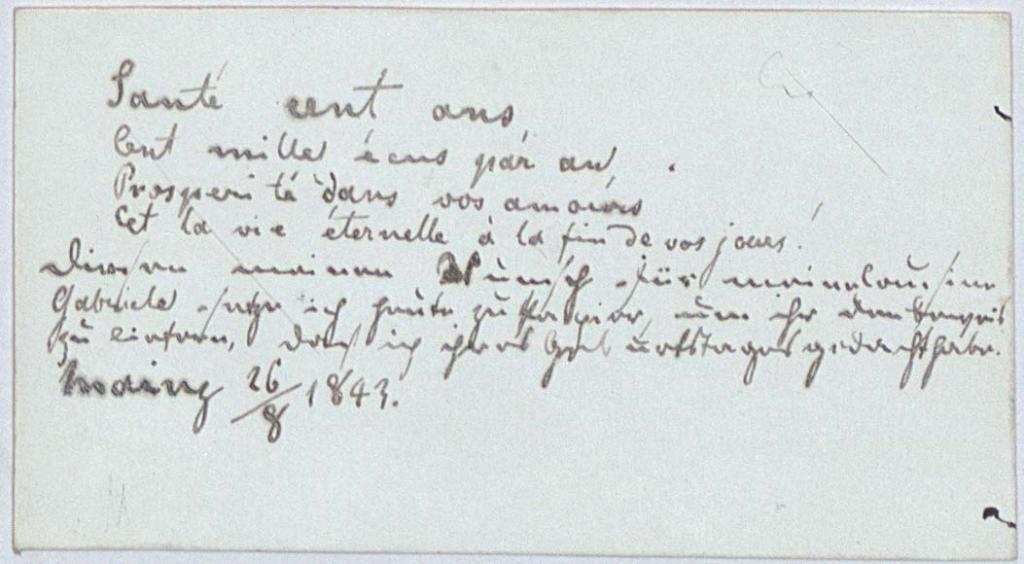 Santé cent ans,
Cent mille écus par an,
Prosperité dans vos amours
Et la vie éternelle à la fin de vos jours!
Diesen meinen Wunsch für meine Cousine
Gabriele setze ich heute zu Papier, um ihr den Beweis
zu liefern, daß ich ihres Geburtstages gedacht habe.
26/8 1843.